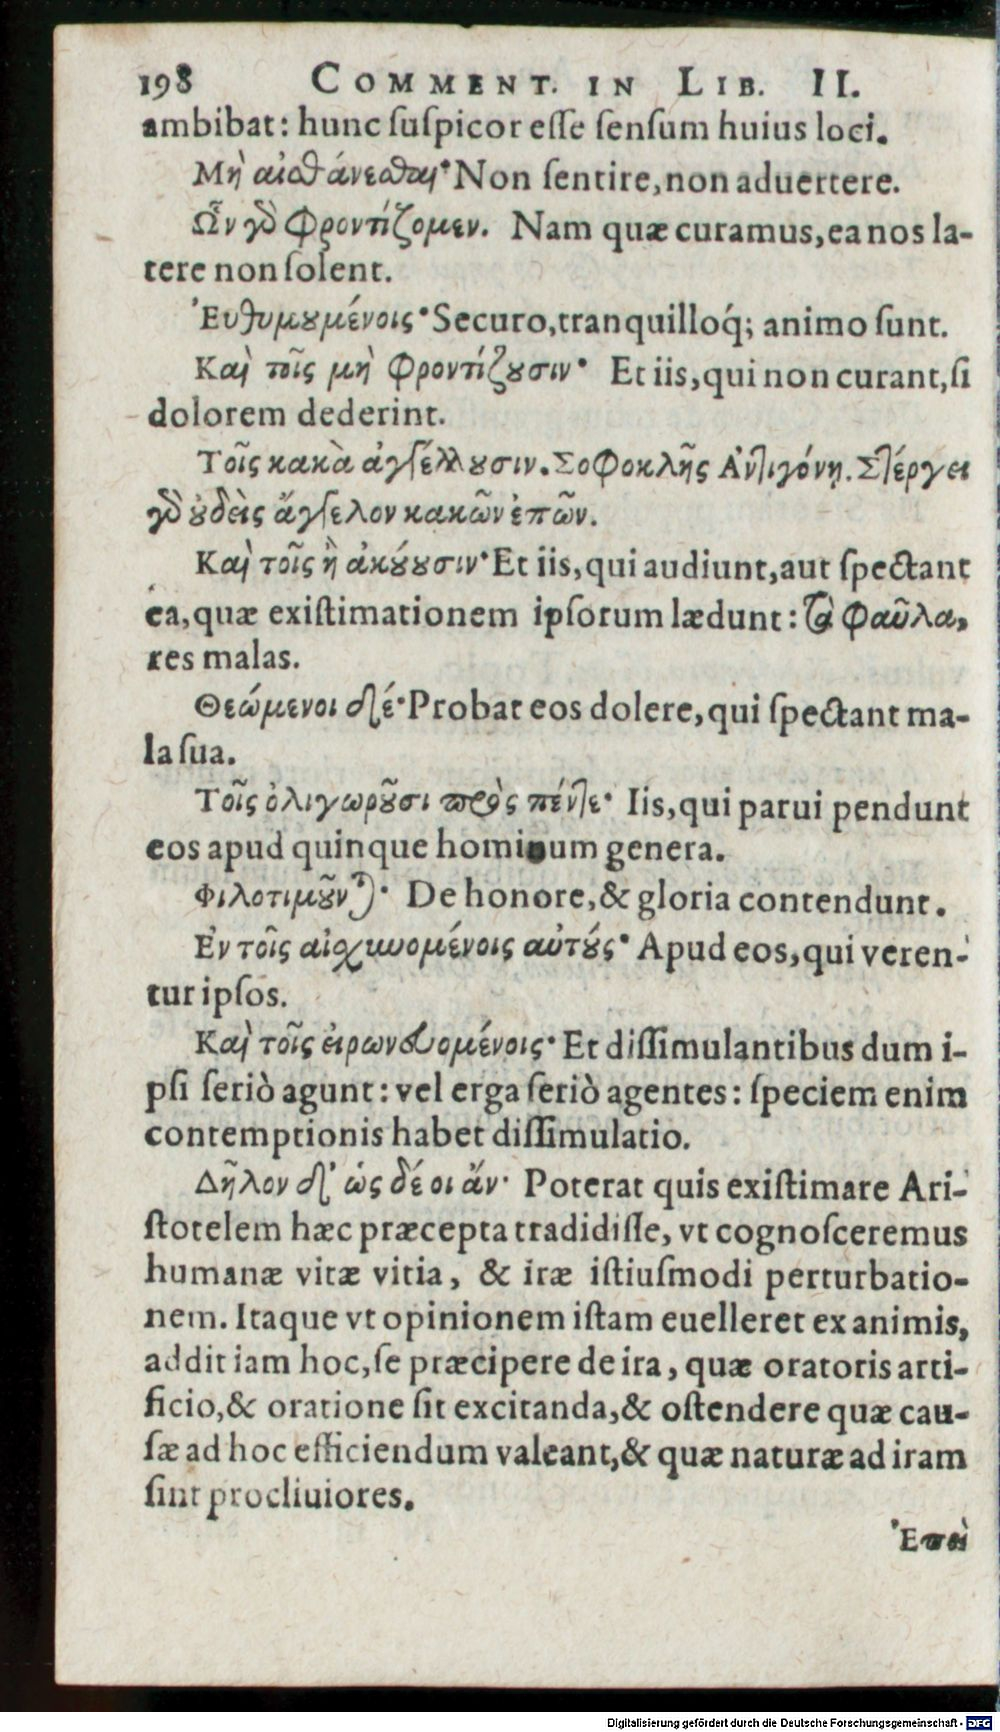 198 COMMENT. IN LIB. II.
ambibat: hunc ſuſpicor eſſe ſenſum huius loci.
Μὴ αἰσθάνεσθαι· Non ſentire, non aduertere.
Ὧν γὸ φροντίζομεν. Nam quæ curamus, ea nos la-
tere non ſolent.
Ἐυθυμȣμένοις· Securo, tranquilloq́; animo ſunt.
Καὶ τοῖς μὴ φροντίζȣσιν· Et iis, qui non curant, ſi
dolorem dederint.
Τοῖς κακὰ ἀγγέλλȣσιν. Σοφοκλῆς Ἀντιγόνῃ. Στέργει
γὸ ȣ̓δεὶς ἄγγελον κακῶν ἐπῶν.
Καὶ τοῖς ἢ ἀκȣ́ȣσιν· Et iis, qui audiunt, aut ſpectant
ea, quæ exiſtimationem ipſorum lædunt: τὰ φαῦλα,
res malas.
Θεώμενοι δέ· Probat eos dolere, qui ſpectant ma-
la ſua.
Τοῖς ὀλιγωρȣ͂σι πρὸς πέντε· Iis, qui parui pendunt
eos apud quinque hominum genera.
Φιλοτιμȣ͂νται· De honore, & gloria contendunt.
Ἐν τοῖς αἰσχυνομένοις αὐτȣ́ς· Apud eos, qui veren-
tur ipſos.
Καὶ τοῖς εἰρωνευομένοις· Et diſſimulantibus dum i-
pſi ſeriò agunt: vel erga ſeriò agentes: ſpeciem enim
contemptionis habet diſſimulatio.
Δῆλον δ' ὡς δέοι ἄν· Poterat quis exiſtimare Ari-
ſtotelem hæc præcepta tradidiſſe, vt cognoſceremus
humanæ vitæ vitia, & iræ iſtiuſmodi perturbatio-
nem. Itaque vt opinionem iſtam euelleret ex animis,
addit iam hoc, ſe præcipere de ira, quæ oratoris arti-
ficio, & oratione ſit excitanda, & oſtendere quæ cau-
ſæ ad hoc efficiendum valeant, & quæ naturæ ad iram
ſint procliuiores.
Ἐπεὶ
Digitalisierung gefördert durch die Deutsche Forschungsgemeinschaft - DFG